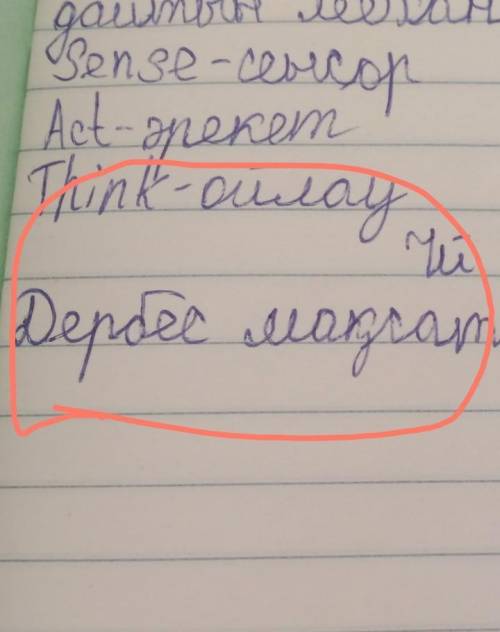 Sense-сенсор
Act-әрекет
Think-ойлау
Үй
Дербес мақсат